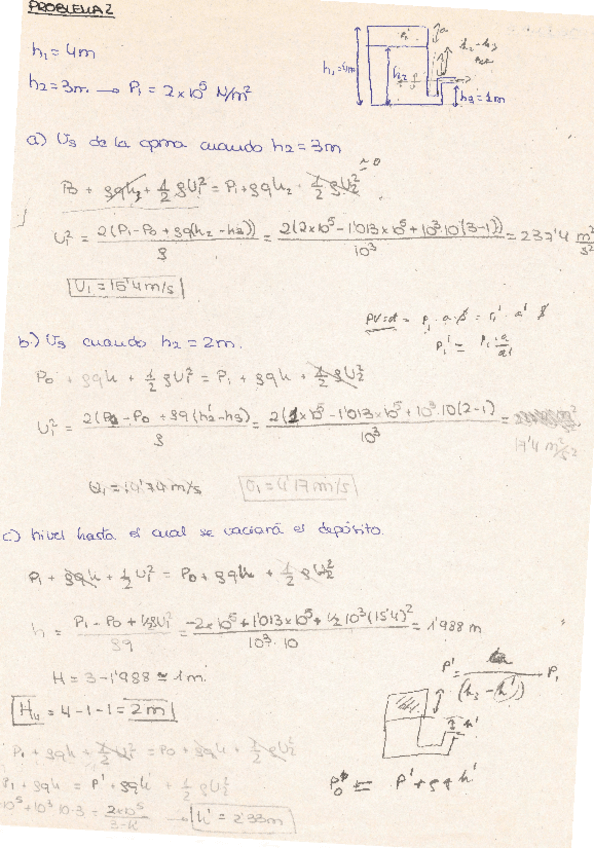 PROBLEMA 2
h₁ = 4m
h₂ = 3m → P₁ = 2×10⁵ N/m²
h₁=4m
h₂
h₃=1m
a) U₃ de la cuando h₂ = 3m
P₀ + ρgh₃ + 1/2 ρU₁² = P₁ + ρgh₂ + 1/2 ρU₂² ≈ 0
U₁² = 2(P₁-P₀ + ρg(h₂-h₃))/ρ = 2(2×10⁵ - 1'013×10⁵ + 10³·10(3-1))/10³ = 237'4 m²/s²
U₁ = 15'4 m/s
b.) U₃ cuando h₂ = 2m.
P₀ + ρgh + 1/2 ρU₁² = P₁ + ρgh + 1/2 ρU₂²
U₁² = 2(P₁-P₀ + ρg(h₂'-h₃))/ρ = 2(1×10⁵ - 1'013×10⁵ + 10³·10(2-1))/10³ =
17'4 m²/s²
U₁ = 14'74 m/s U₁ = 4'17 m/s
c) Nivel hasta el cual se vaciará el depósito.
P₁ + ρgh + 1/2 U₁² = P₀ + ρgh + 1/2 ρU₂²
h = P₁ - P₀ + 1/2 ρU₁²/ρg = -2×10⁵ + 1'013×10⁵ + 1/2 10³(15'4)²/10³·10 = 1'988 m
H = 3 - 1'988 ≅ 1m.
H = 4-1-1 = 2m
P' = P₁
(h₃ - h')
h'
P₁ + ρgh + 1/2 U² = P₀ + ρgh + 1/2 ρU₂²
P₁ + ρgh = P' + ρgh + 1/2 ρU₂²
P₀ = P' + ρgh'
10⁵ + 10³·10·3 = 2×10⁵/3-h' → h' = 2'33m